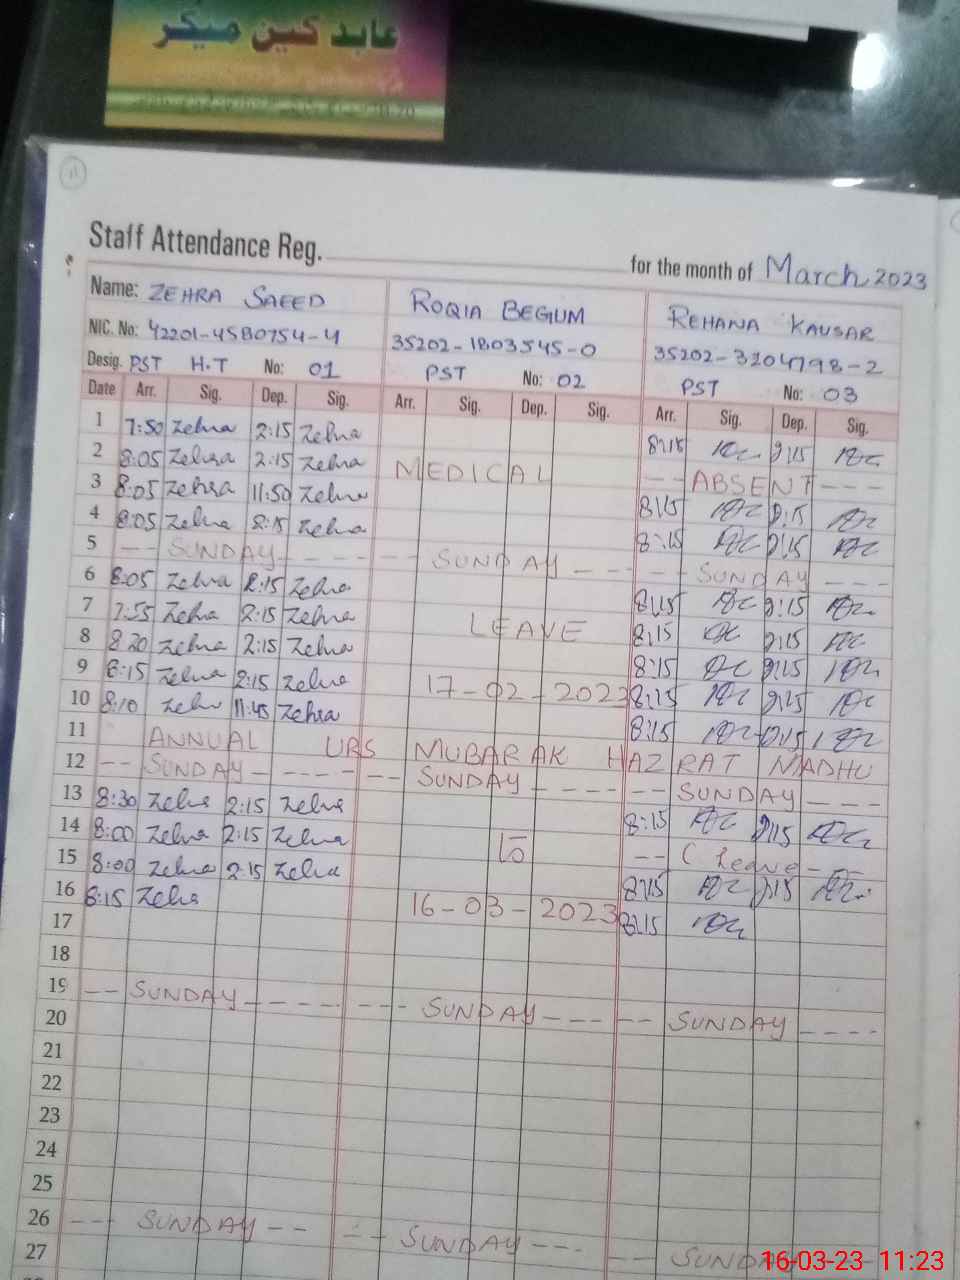 عابد کین میکر
11
Staff Attendance Reg. for the month of March 2023
Name: ZEHRA SAEED ROQIA BEGUM REHANA KAUSAR
NIC. No: 42201-4580754-4 35202-1803545-0 35202-3204798-2
Desig. PST H.T No: 01 PST No: 02 PST No: 03
Date Arr. Sig. Dep. Sig. Arr. Sig. Dep. Sig. Arr. Sig. Dep. Sig.
1 7:50 Zehra 2:15 Zehra 8:15 2:15
2 8:05 Zehra 2:15 Zehra MEDICAL -- ABSENT ---
3 8:05 Zehra 11:50 Zehra 8:15 2:15
4 8:05 Zehra 2:15 Zehra 8:15 2:15
5 -- SUNDAY ---- --- SUNDAY --- -- SUNDAY ---
6 8:05 Zehra 2:15 Zehra 8:15 2:15
7 7:55 Zehra 2:15 Zehra LEAVE 8:15 2:15
8 8:20 Zehra 2:15 Zehra 8:15 2:15
9 8:15 Zehra 2:15 Zehra 17-02-2023 8:15 2:15
10 8:10 Zehra 11:45 Zehra 8:15
11 ANNUAL URS MUBARAK HAZRAT MADHU
12 -- SUNDAY ----- -- SUNDAY ---- -- SUNDAY ---
13 8:30 Zehra 2:15 Zehra 8:15 2:15
14 8:00 Zehra 2:15 Zehra TO -- ( Leave ---
15 8:00 Zehra 2:15 Zehra 8:15 2:15
16 8:15 Zehra 16-03-2023 8:15
17
18
19 -- SUNDAY ---- --- SUNDAY --- -- SUNDAY ----
20
21
22
23
24
25
26 -- SUNDAY -- -- SUNDAY --- -- SUNDAY
27
16-03-23 11:23